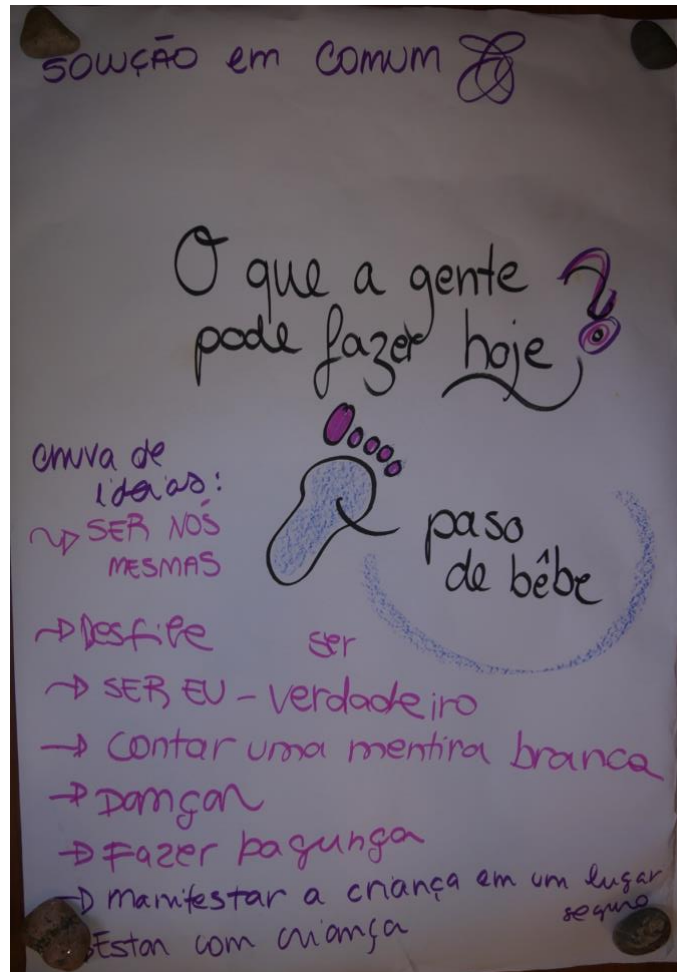 SOLUÇÃO em COMUM
O que a gente
pode fazer hoje?
chuva de
ideias:
→ SER NÓS
MESMAS
paso
de bêbe
→ Desfile
ser
→ SER EU - verdadeiro
→ contar uma mentira branca
→ Dançar
→ Fazer bagunça
→ manifestar a criança em um lugar
seguro
Estar com criança